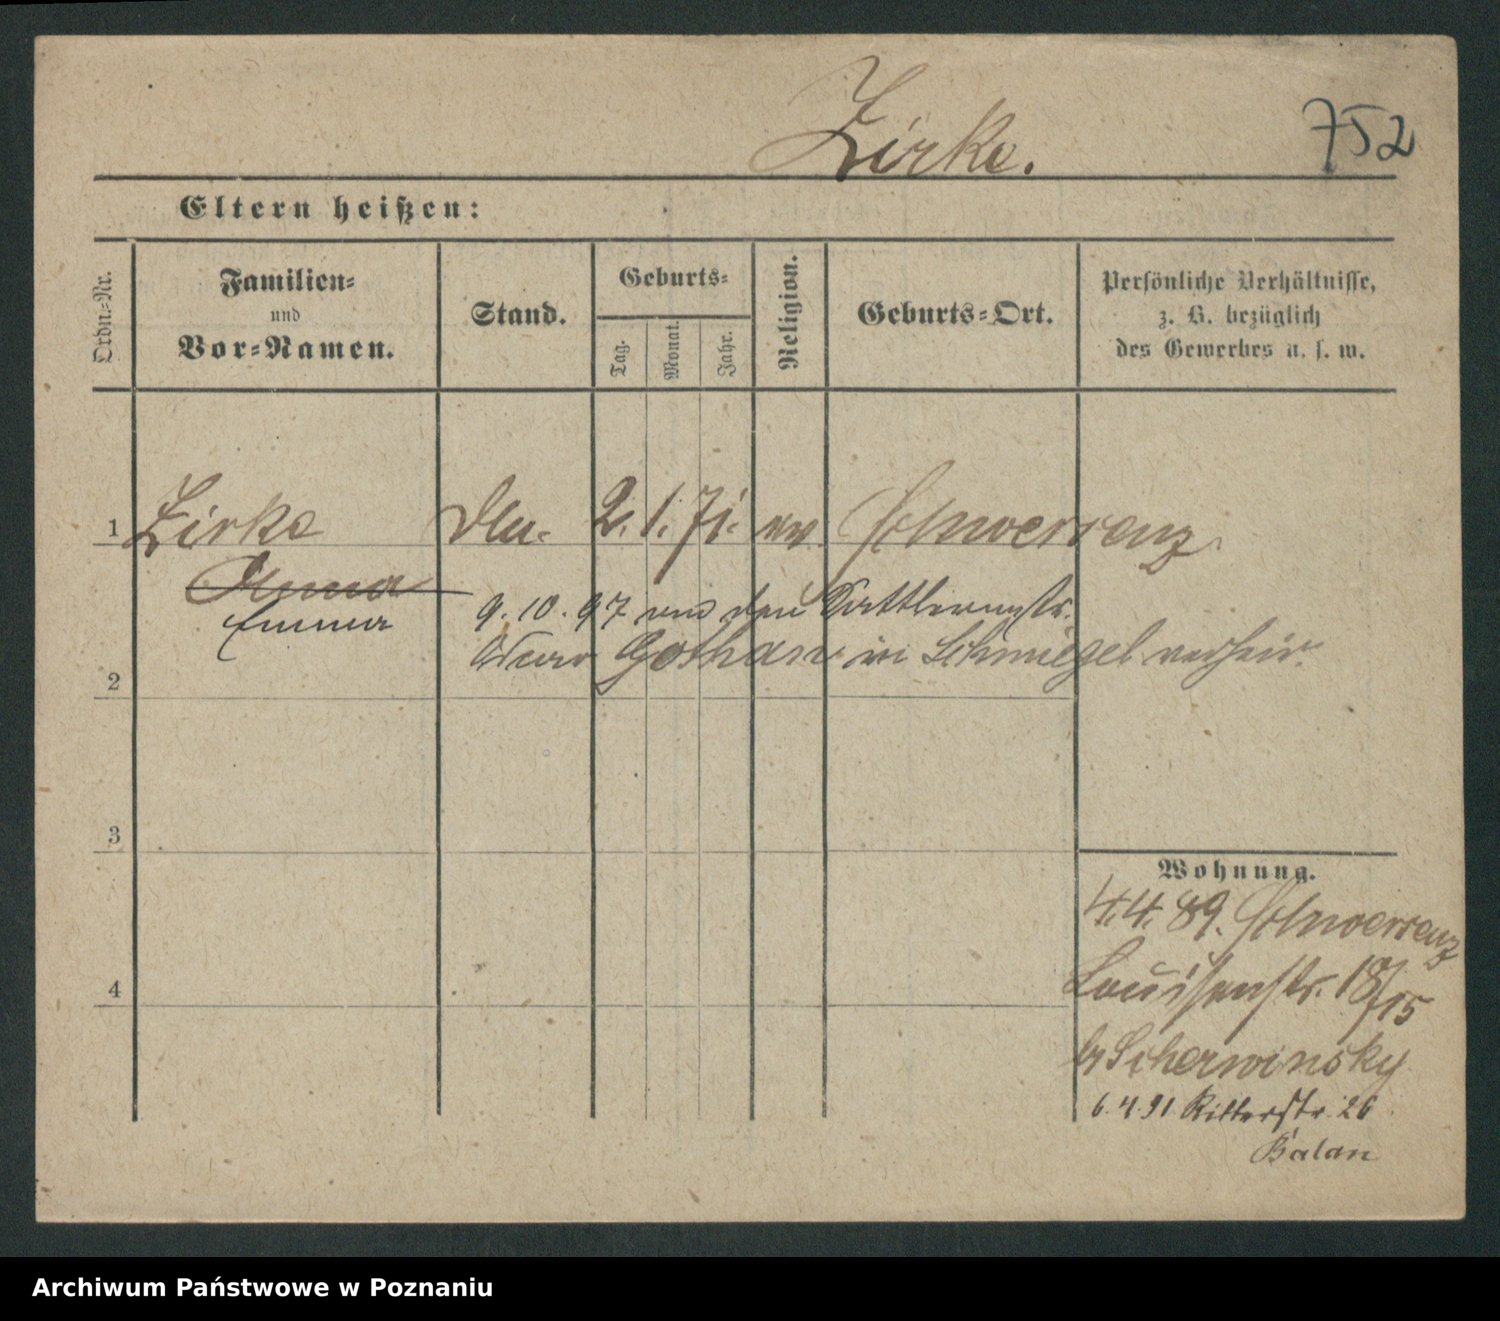 Zirke.
752
Eltern heißen:
Ordn.-Nr.
Familien-
und
Vor-Namen.
Stand.
Geburts-
Tag.
Monat.
Jahr.
Religion.
Geburts-Ort.
Persönliche Verhältnisse,
z. B. bezüglich
des Gewerbes u. s. w.
1 Zirke 2. 1. 71. ev. Schwersenz
Anna
Emma
9. 10. 97 mit dem
Gothan in Schmiegel verheir.
2
3
4
Wohnung.
4. 4. 89. Schwersenz
Louisenstr. 18/15
b Scherwinsky
6. 4. 91 Ritterstr. 26
Balan
Archiwum Państwowe w Poznaniu